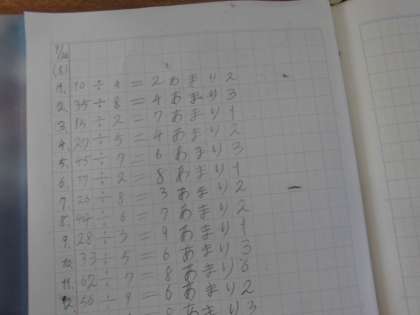 1. 10÷4=2あまり2
2. 35÷8=4あまり3
3. 15÷2=7あまり1
4. 22÷5=4あまり2
5. 45÷7=6あまり3
6. 17÷2=8あまり1
7. 26÷8=3あまり2
8. 44÷6=7あまり2
9. 28÷3=9あまり1
10. 33÷5=6あまり3
11. 62÷7=8あまり6
12. 56÷9=6あまり2
あまり3